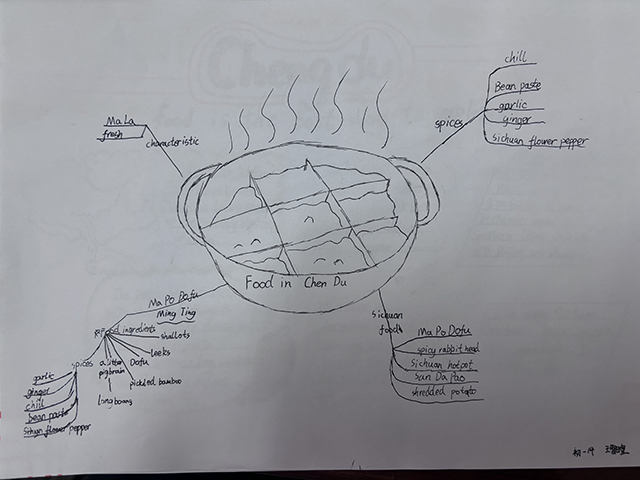 chill
Bean paste
garlic
ginger
Sichuan flower pepper
spices
MaLa
fresh
characteristic
Food in Chen Du
Ma Po Dofu
Ming Ting
ingrediots
shallots
leeks
Dofu
pickled bamboo
pigbrain
spices
garlic
ginger
chill
bean paste
flower pepper
Sichuan
food
Ma Po Dofu
spicy rabbit head
Sichuan hotpot
San Da Pao
shredded potato
初一19